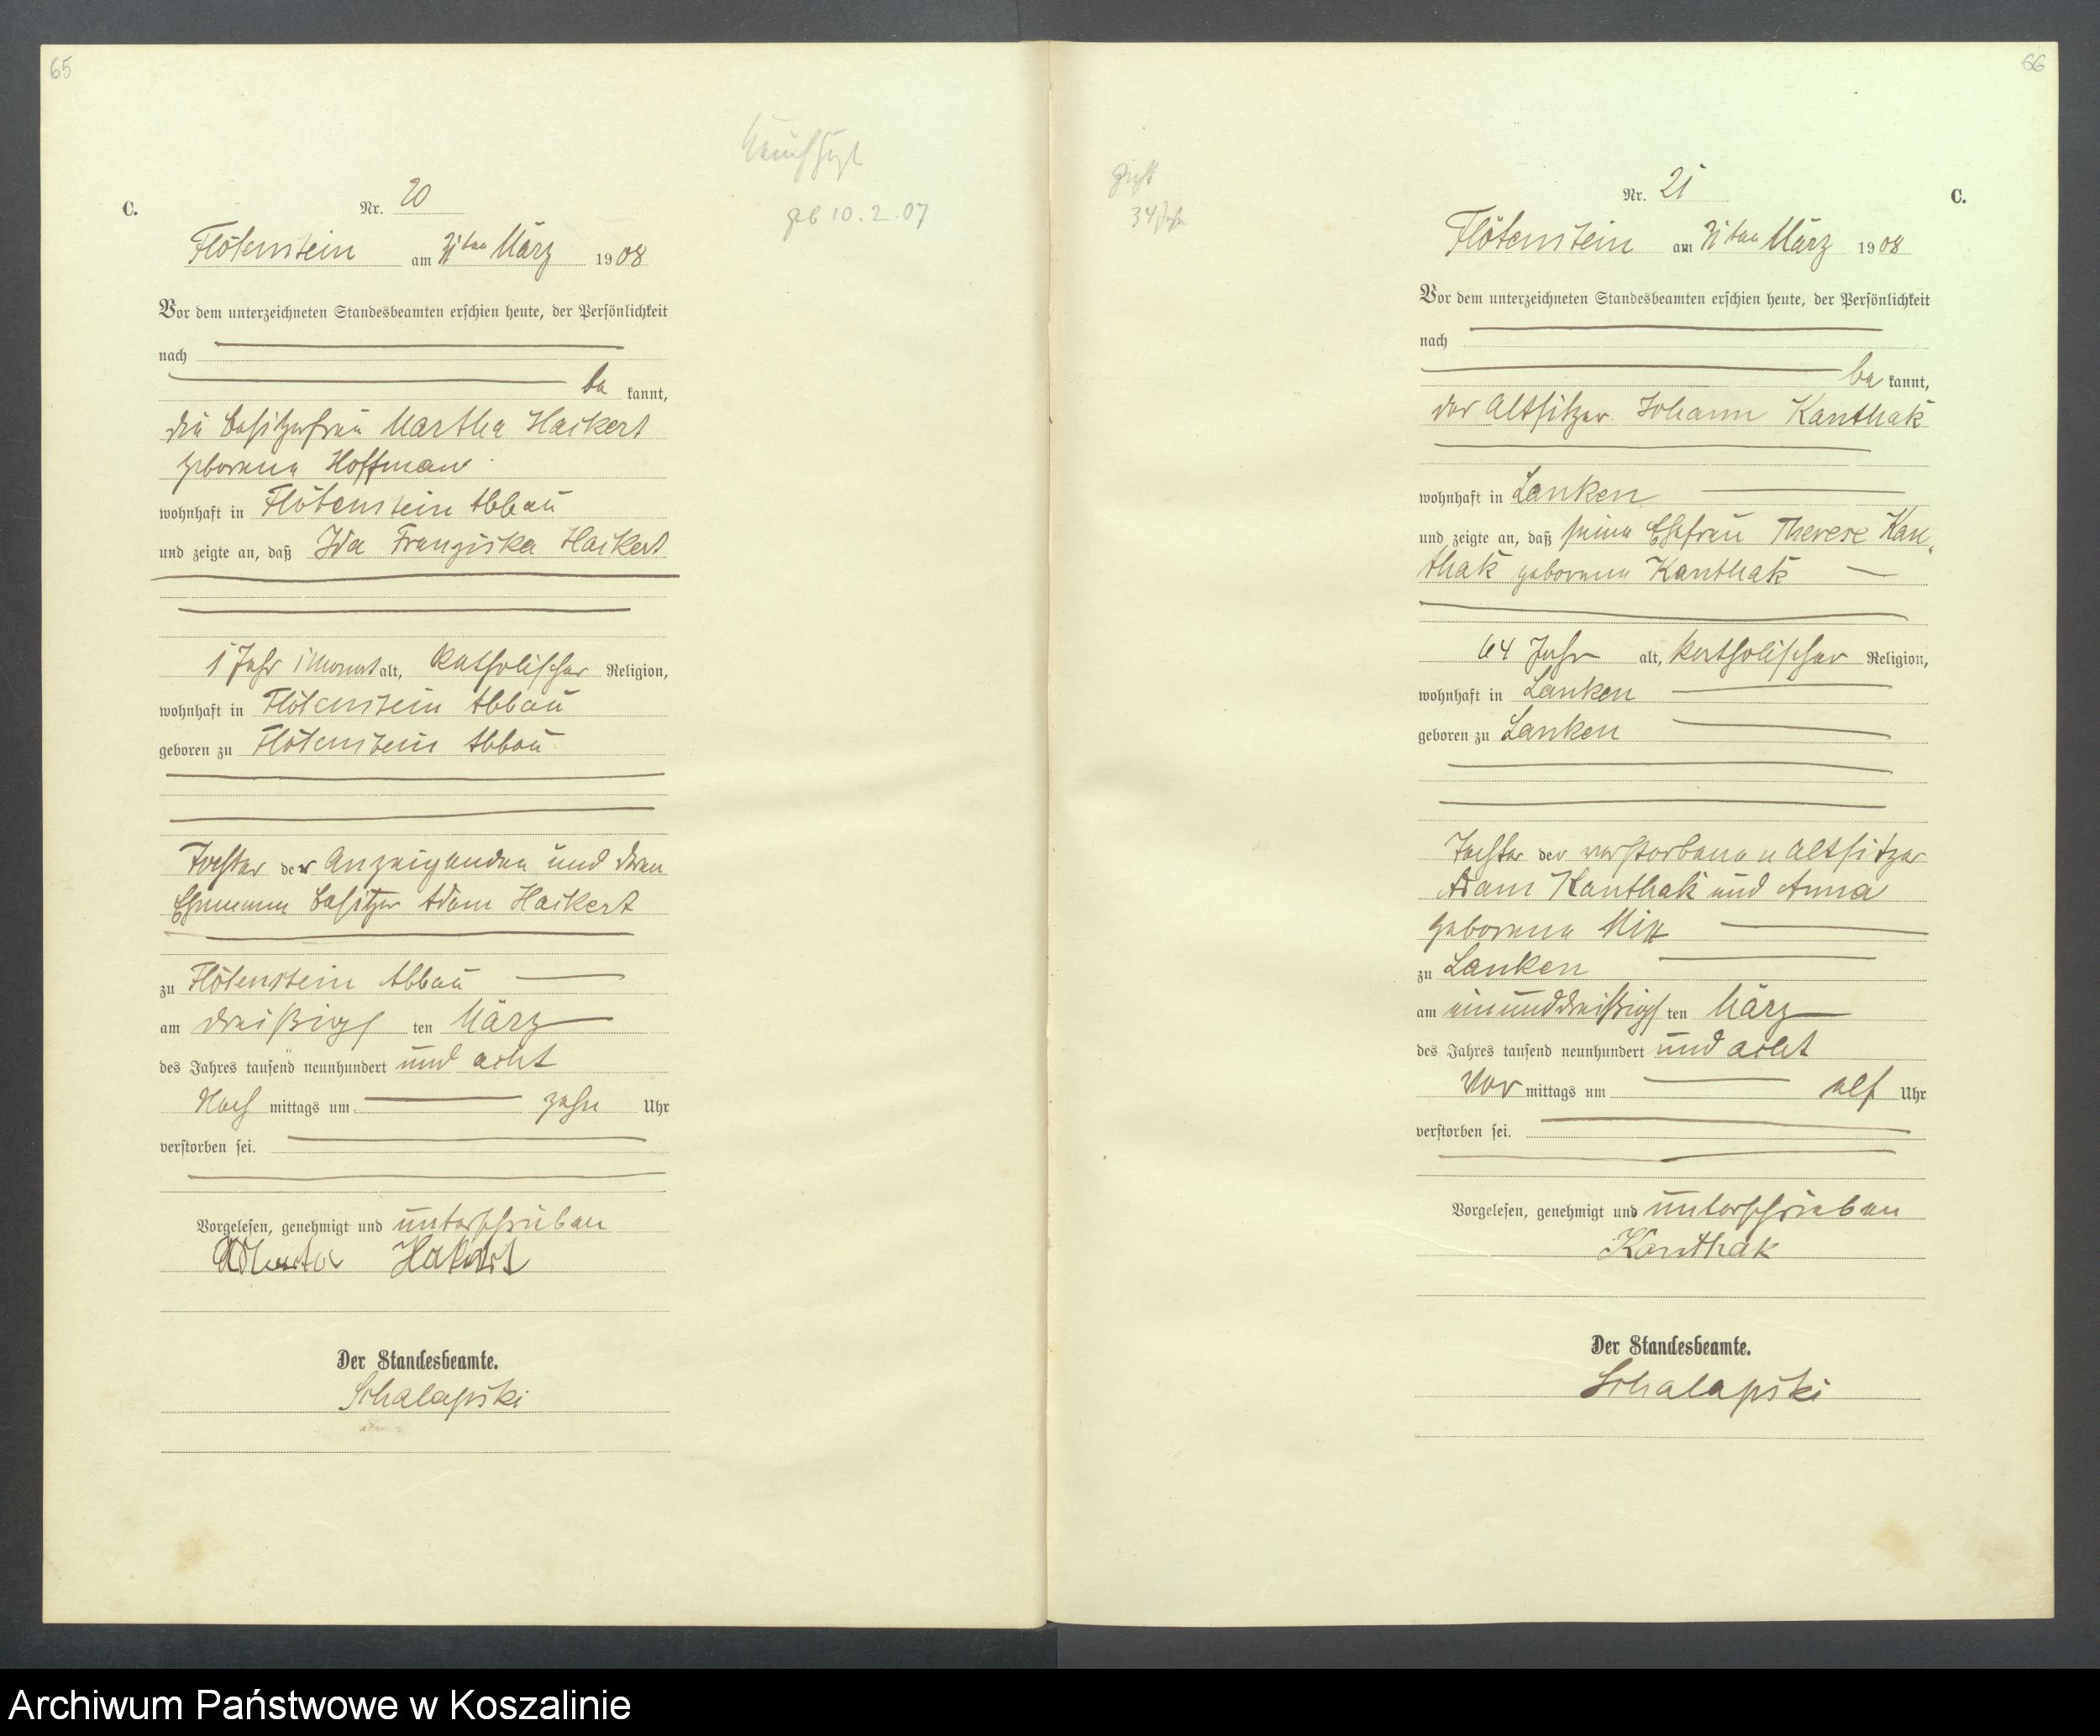 65
geb 10.2.07
C.
Nr. 20
Flötenstein am 31ten März 1908
Vor dem unterzeichneten Standesbeamten erschien heute, der Persönlichkeit
nach
be kannt,
die Besitzerfrau Martha Haikert
geborene Hoffman
wohnhaft in Flötenstein Abbau
und zeigte an, daß Ida Franziska Haikert
1 Jahr 1 Monat alt, katholischer Religion,
wohnhaft in Flötenstein Abbau
geboren zu Flötenstein Abbau
Tochter der Anzeigenden und deren
Ehemann Besitzer Adam Haikert
zu Flötenstein Abbau
am dreißigs ten März
des Jahres tausend neunhundert und acht
Nach mittags um zehn Uhr
verstorben sei.
Vorgelesen, genehmigt und unterschrieben
Der Standesbeamte.
Schalapski
66
34 Jahr
Nr. 21
C.
Flötenstein am 31ten März 1908
Vor dem unterzeichneten Standesbeamten erschien heute, der Persönlichkeit
nach
be kannt,
der Altsitzer Johann Kanthak
wohnhaft in Lanken
und zeigte an, daß seine Ehefrau Therese Kan-
thak geborene Kanthak
64 Jahr alt, katholischer Religion,
wohnhaft in Lanken
geboren zu Lanken
Tochter der verstorbenen Altsitzer
Adam Kanthak und Anna
geborene
zu Lanken
am einunddreißigs ten März
des Jahres tausend neunhundert und acht
Vor mittags um elf Uhr
verstorben sei.
Vorgelesen, genehmigt und unterschrieben
Kanthak
Der Standesbeamte.
Schalapski
Archiwum Państwowe w Koszalinie